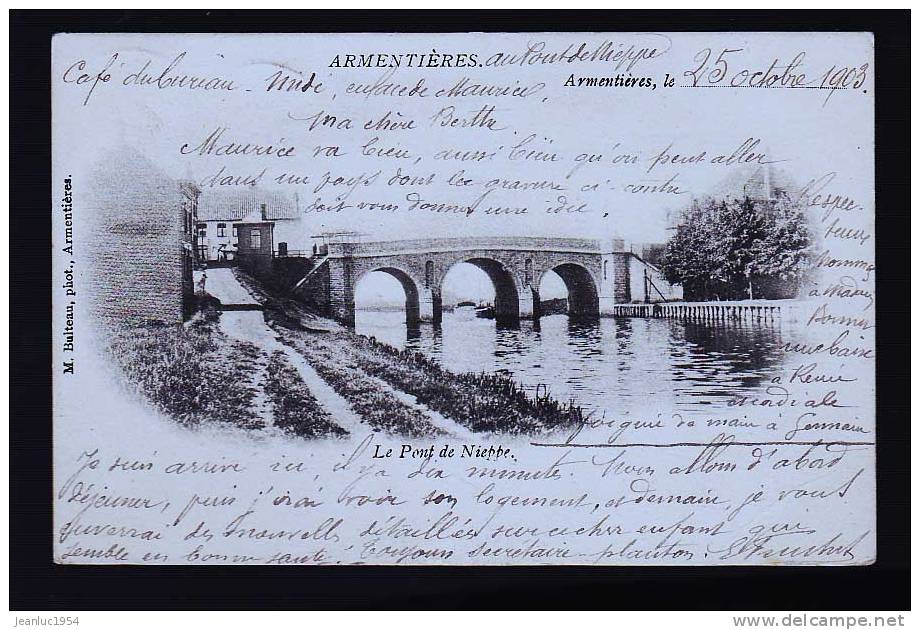 ARMENTIÈRES. au Pont de Nieppe
Armentières, le 25 octobre 1903.
Café du Midi, en face de Maurice,
Ma chère Berthe
Maurice va bien, aussi bien qu'on peut aller
dans un pays dont la gravure ci-contre
doit vous donner une idée.
Respec-
tueux
homma
à Mada
à Renée
cordiale
poignée de main à Germain
M. Bulteau, phot., Armentières.
Le Pont de Nieppe.
Je suis arrivé ici, il y a dix minutes. Nous allons d'abord
déjeuner, puis j'irai voir son logement, et demain, je vous
enverrai des nouvelles détaillées sur ce cher enfant qui
semble en bonne santé. Toujours secrétaire-planton.
jeanluc1954
delcampe.net